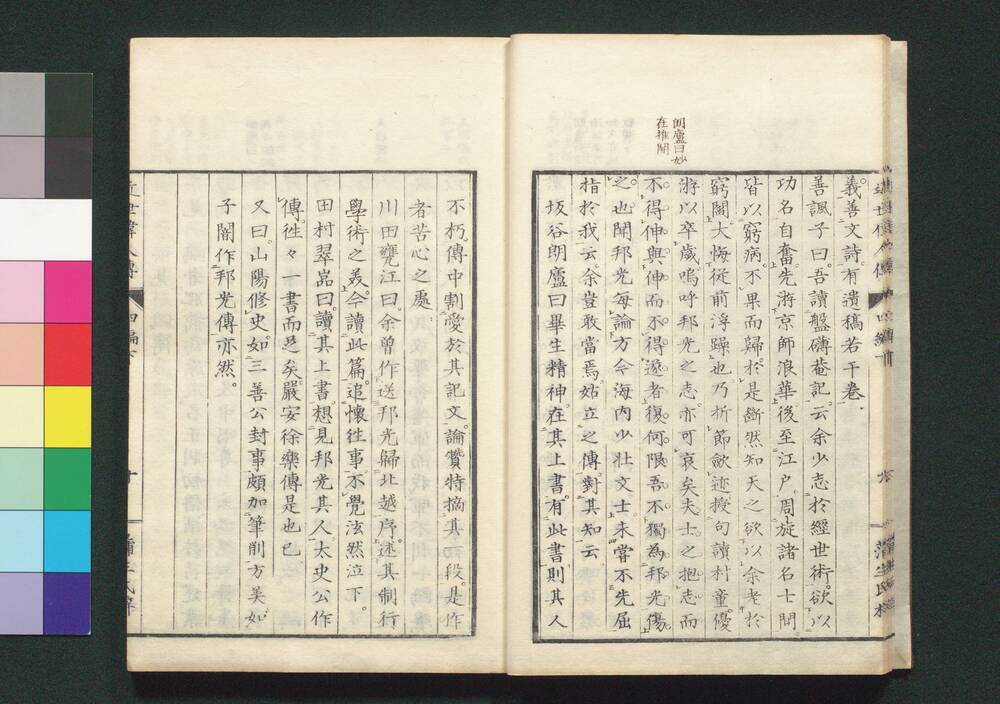 朗廬曰妙
在推闡
義善文詩有遺稿若干卷
善諷子曰吾讀盤礴菴記云余少志於經世術欲以
功名自奮先游京師浪華後至江户周旋諸名士間
皆以窮病不果而歸於是斷然知天之欲以余老於
窮閻大悔從前浮躁也乃折節斂迹授句讀村童優
游以卒歲嗚呼邦光之志亦可哀矣夫士之抱志而
不得伸與伸而不得遂者復何限吾不獨為邦光傷
之也聞邦光每論方今海内少壯文士未嘗不先屈
指於我云余豈敢當焉姑立之傳對其知云
坂谷朗廬曰畢生精神在其上書有此書則其人
不朽傳中割愛於其記文論贊特摘其初段是作
者苦心之處
川田甕江曰余曾作送邦光歸北越序述其制行
學術之美今讀此篇追懷往事不覺泫然泣下
田村翠嵒曰讀其上書想見邦光其人太史公作
傳往々一書而足矣嚴安徐樂傳是也已
又曰山陽修史如三善公封事頗加筆削方美如
子闇作邦光傳亦然
近世偉人傳
四編